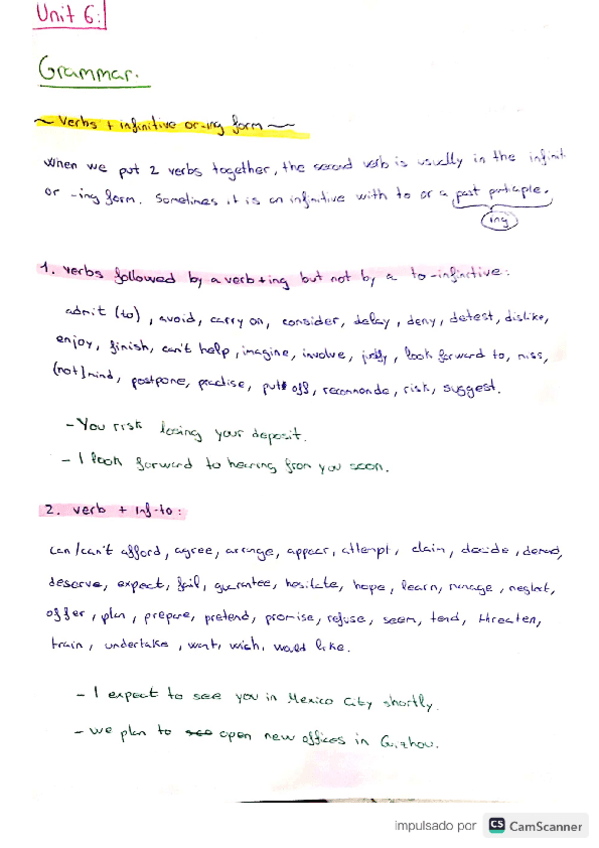 Unit 6:
Grammar.
~ Verbs + infinitive or -ing form ~
When we put 2 verbs together, the second verb is usually in the infinit
or -ing form. Sometimes it is an infinitive with to or a past
ing
1. verbs followed by a verb + ing but not by a to-infinitive:
admit (to), avoid, carry on, consider, delay, deny, detest, dislike,
enjoy, finish, can't help, imagine, involve, justify, look forward to, miss,
(not) mind, postpone, practise, put off, recommende, risk, suggest.
- You risk losing your deposit.
- I look forward to hearing from you soon.
2. verb + inf-to:
can/can't afford, agree, arrange, appear, attempt, claim, decide, demand,
deserve, expect, fail, guarantee, hesitate, hope, learn, manage, neglect,
offer, plan, prepare, pretend, promise, refuse, seem, tend, threaten,
train, undertake, want, wich, would like.
- I expect to see you in Mexico City shortly.
- we plan to see open new offices in Guizhou.
impulsado por CS CamScanner